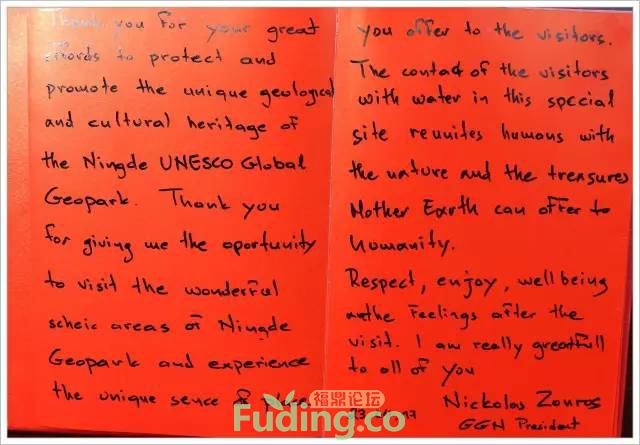 Thank you for your great
effords to protect and
promote the unique geological
and cultural heritage of
the Ningde UNESCO Global
Geopark. Thank you
for giving me the oportunity
to visit the wonderful
scheic areas of Ningde
Geopark and experience
the unique sence & pure
you offer to the visitors.
The contact of the visitors
with water in this special
site reunites humans with
the nature and the treasures
Mother Earth can offer to
humanity.
Respect, enjoy, wellbeing
the feelings after the
visit. I am really greatfull
to all of you
Nickolas Zouros
GGN President
福鼎论坛
Fuding.co